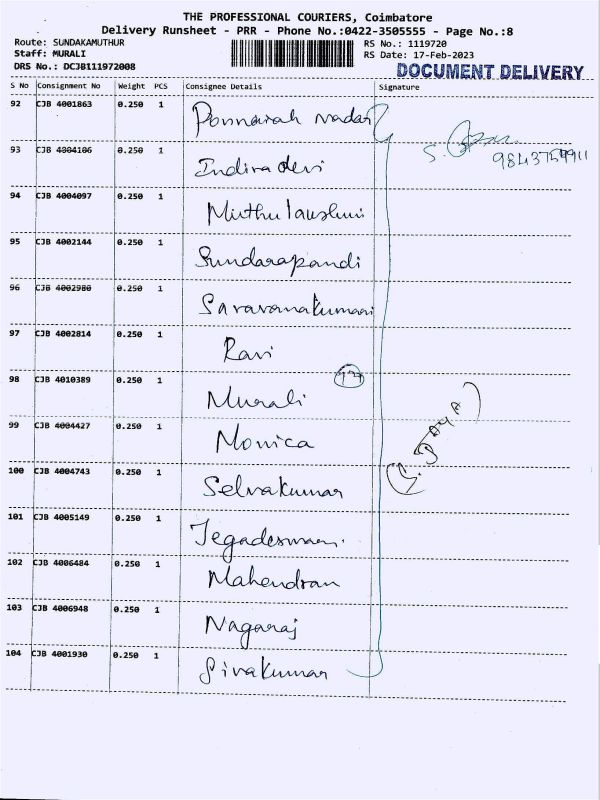 THE PROFESSIONAL COURIERS, Coimbatore
Delivery Runsheet - PRR - Phone No.:0422-3505555 - Page No.:8
Route: SUNDAKAMUTHUR RS No.: 1119720
Staff: MURALI RS Date: 17-Feb-2023
DRS No.: DCJB111972008 DOCUMENT DELIVERY
S No Consignment No Weight PCS Consignee Details Signature
92 CJB 4001863 0.250 1 Ponnaiah Nadar
93 CJB 4004106 0.250 1 Indira devi
94 CJB 4004097 0.250 1
95 CJB 4002144 0.250 1 Sundarapandi
96 CJB 4002980 0.250 1 Saravanakumaari
97 CJB 4002814 0.250 1 Ravi
98 CJB 4010389 0.250 1 Murali
99 CJB 4004427 0.250 1 Monica
100 CJB 4004743 0.250 1 Selvakumar
101 CJB 4005149 0.250 1
102 CJB 4006484 0.250 1 Mahendran
103 CJB 4006948 0.250 1 Nagaraj
104 CJB 4001930 0.250 1 Sivakumar